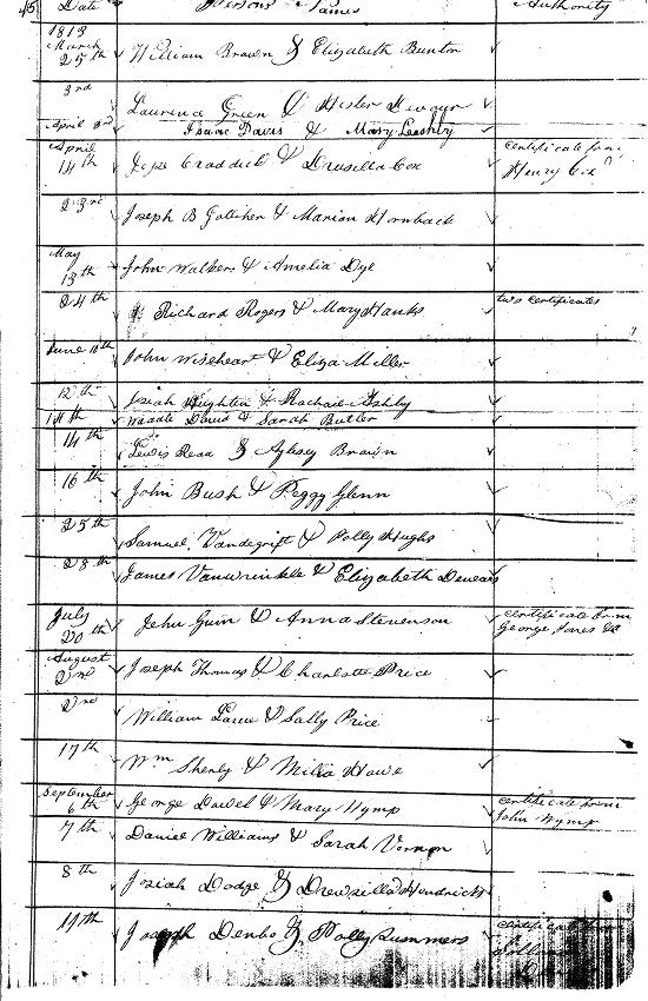 45 Date Persons Names Authority
1813
March
25th William Brown & Elizabeth Bunton
3rd
Laurence Green & Hester
April 3rd Isaac Davis & Mary Leashly
April certificate from
14th Jesse Craddick & Drusilla Cox Henry Cox
23rd Joseph B Golliher & Marian Hornback
May
13th John Walkers & Amelia Dye
24th Richard Rogers & Mary Hanks two certificates
June 10th John Wiseheart & Eliza Miller
12th Josiah Hughten & Rachael Ashby
14th Waddle David & Sarah Butler
14th Lewis Read & Aylsey Brown
16th John Bush & Peggy Glenn
25th Samuel Vandegrift & Polly Hughs
28th James Vanwrinkle & Elizabeth Devears
July certificate from
20th Jehu Guin & Anna Stevenson George Jones &c
August
2nd Joseph Thomas & Charlotte Price
2nd
William Larue & Sally Price
17th
Wm Shenly & Milia Howe
September certificate from
6th George Dowel & Mary Wymp John Wymp
7th Daniel Williams & Sarah Vernon
8th
Josiah Dodge & Drewsilla Hendricks
19th certificate from
Joseph Denbo & Polly Summers